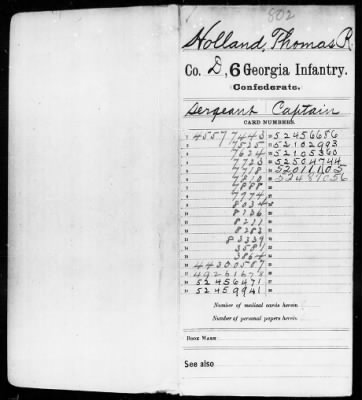 802
Holland, Thomas R.
Co. D, 6 Georgia Infantry.
Confederate.
Sergeant Captain
CARD NUMBERS.
1 45577443 52456686
2 7525 52102993
3 7624 52105360
4 7723 52504744
5 7718 52011105
6 7810 52481056
7 7888
8 7974
9 8034
10 8126
11 8221
12 8283
13 83339
14 3581
15 3864
16 44300587
17 49261678
18 52456471
19 52459941
Number of medical cards herein
Number of personal papers herein
BOOK MARK:
See also